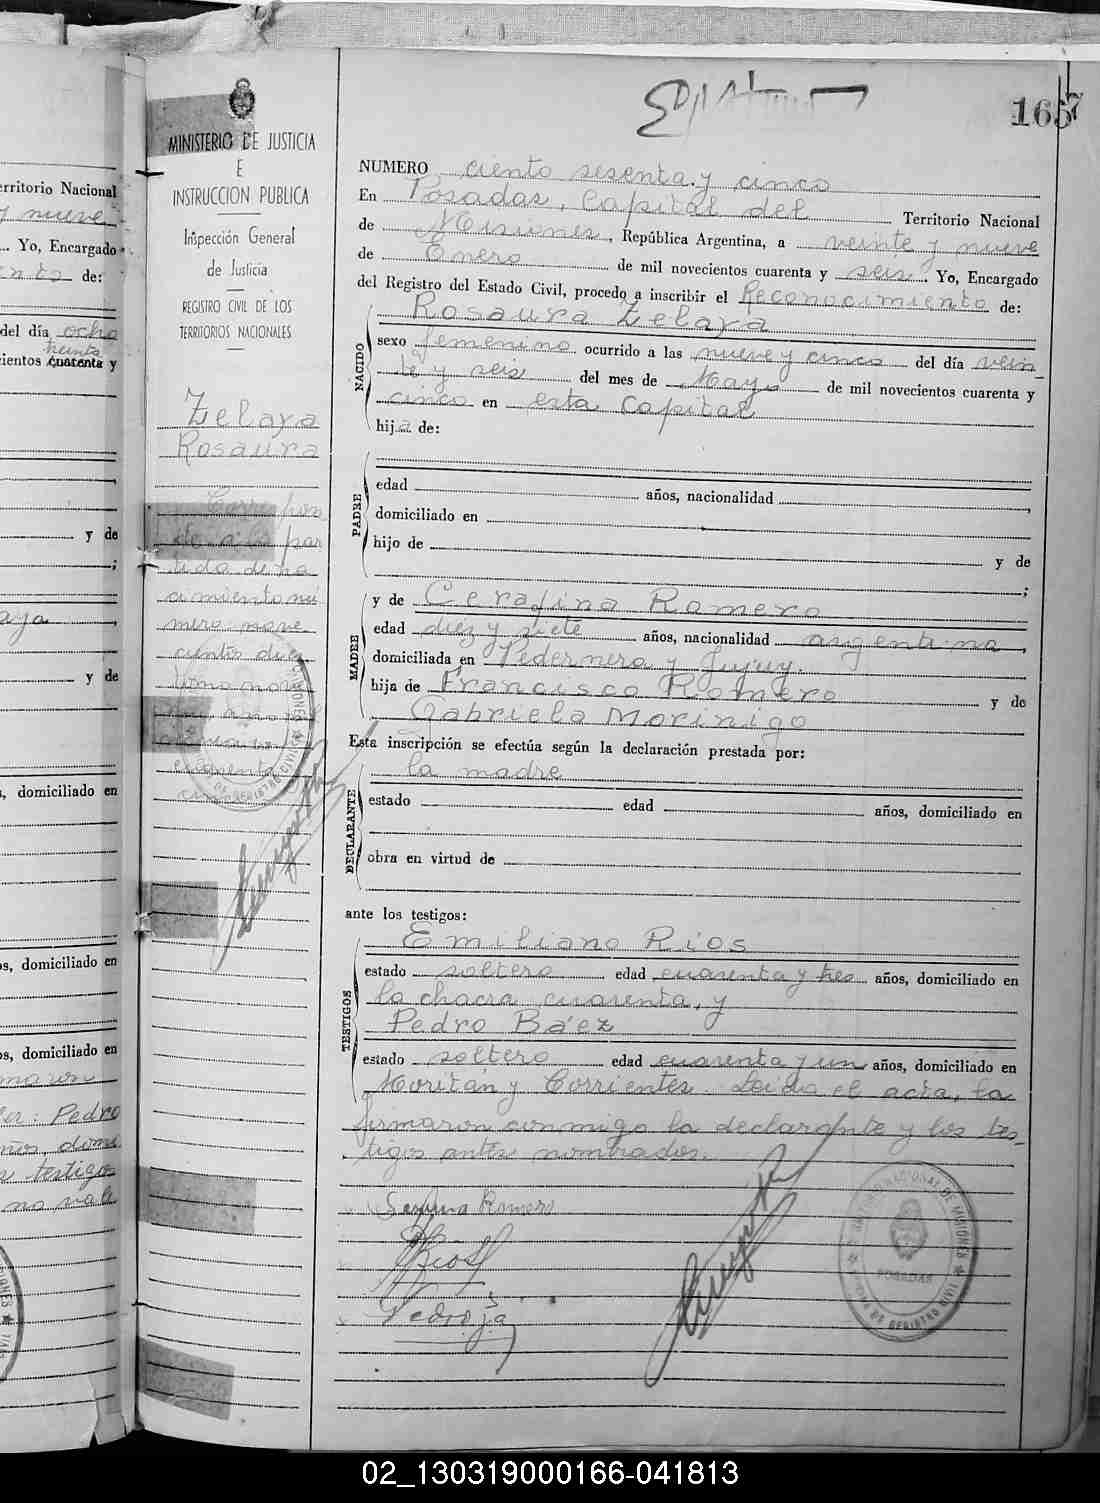 165
MINISTERIO DE JUSTICIA
E
INSTRUCCION PUBLICA
Inspección General
de Justicia
REGISTRO CIVIL DE LOS
TERRITORIOS NACIONALES
Zelaya
Rosaura
Correspon
de a la par
tida de na
cimiento nu
mero nove
cientos diez
NUMERO ciento sesenta y cinco
En Posadas, Capital del Territorio Nacional
de Misiones, República Argentina, a veinte y nueve
de Enero de mil novecientos cuarenta y seis. Yo, Encargado
del Registro del Estado Civil, procedo a inscribir el Reconocimiento de:
Rosaura Zelaya
NACIDO
sexo femenino ocurrido a las nueve y cinco del día vein
te y seis del mes de Mayo de mil novecientos cuarenta y
cinco en esta Capital
hija de:
PADRE
edad años, nacionalidad ,
domiciliado en
hijo de y de
;
MADRE
y de Cerafina Romero
edad diez y siete años, nacionalidad argentina,
domiciliada en Pedernera y Jujuy.
hija de Francisco Romero y de
Gabriela Morinigo
Esta inscripción se efectúa según la declaración prestada por:
la madre
DECLARANTE
estado edad años, domiciliado en
obra en virtud de
ante los testigos:
TESTIGOS
Emiliano Rios
estado soltero edad cuarenta y tres años, domiciliado en
la chacra cuarenta, y
Pedro Báez
estado soltero edad cuarenta y un años, domiciliado en
y Corrientes Leida el acta, la
firmaron conmigo la declarante y los tes-
tigos antes nombrados.
Romero
Rios
Pedro
POSADAS
erritorio Nacional
y nueve
Yo, Encargado
de:
del día ocho
treinta
cientos cuarenta y
y de
;
y de
, domiciliado en
s, domiciliado en
s, domiciliado en
Pedro
testigos
no vale
02_130319000166-041813